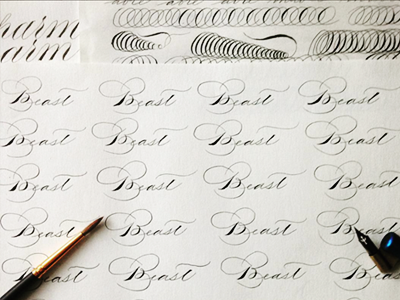 harm
arm
Beast Beast Beast Beast
Beast Beast Beast Beast
Beast Beast Beast Beast
Beast Beast Beast Beast
Beast Beast Beast Beast